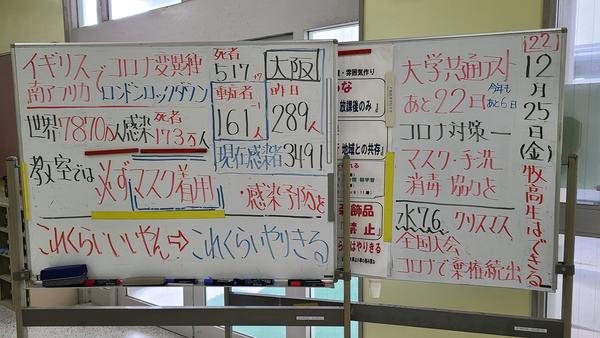 イギリスでコロナ変異種
南アフリカ ロンドンロックダウン
世界7870万人感染 死者173万人
教室では必ずマスク着用!
・感染予防と
これくらいいいやん⇨これくらいやりきる
死者
517 +7
重症者 -1
161人
大阪
昨日
289人
現在感染者3491
・雰囲気作り
放課後のみ」
地域との共存」
禁止」
はやりきる
大学共通テスト
あと22日 今年もあと6日
コロナ対策一
マスク・手洗
消毒 協力を
水76 クリスマス
全国大会
コロナで棄権続出
[22]
12月25日(金)牧高生はできる